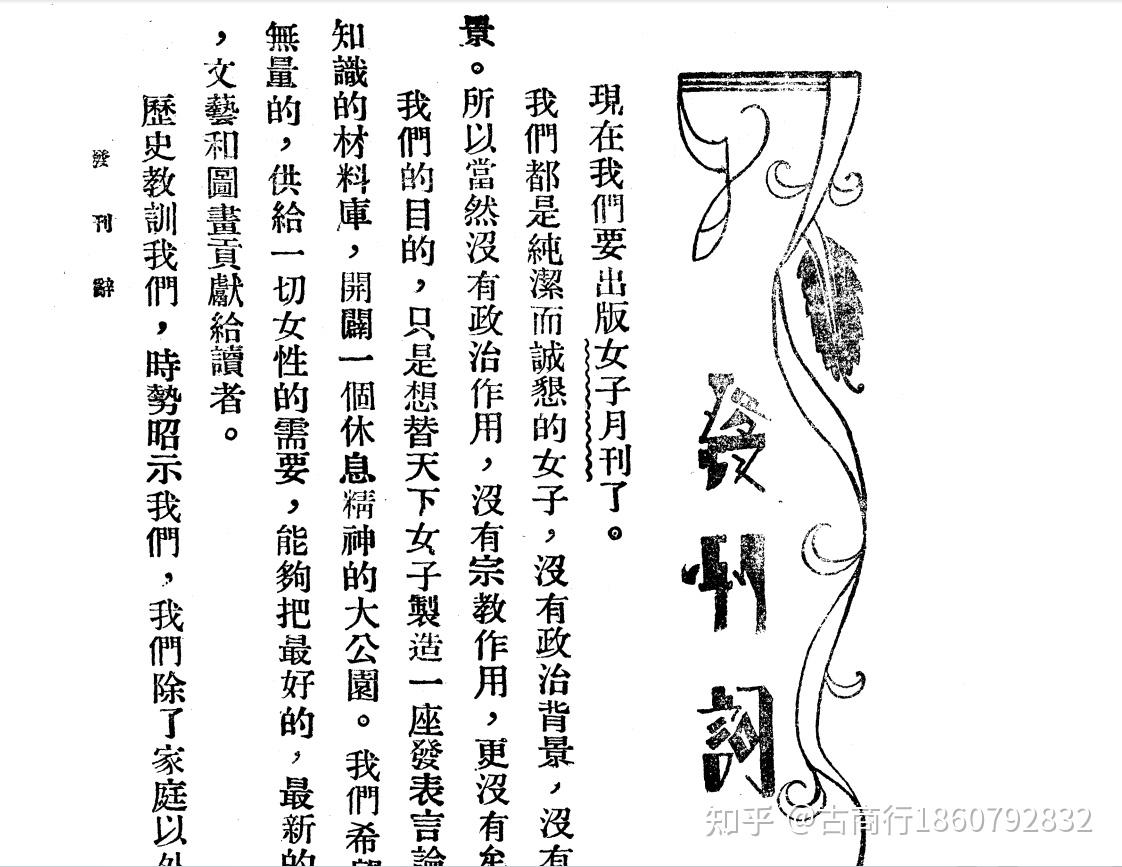 發刊詞
現在我們要出版女子月刊了。
我們都是純潔而誠懇的女子，沒有政治背景，沒有
景。所以當然沒有政治作用，沒有宗教作用，更沒有
我們的目的，只是想替天下女子製造一座發表言論
知識的材料庫，開闢一個休息精神的大公園。我們希
無量的，供給一切女性的需要，能夠把最好的，最新的
，文藝和圖畫貢獻給讀者。
歷史教訓我們，時勢昭示我們，我們除了家庭以外
發刊辭
知乎 @古商行1860792832